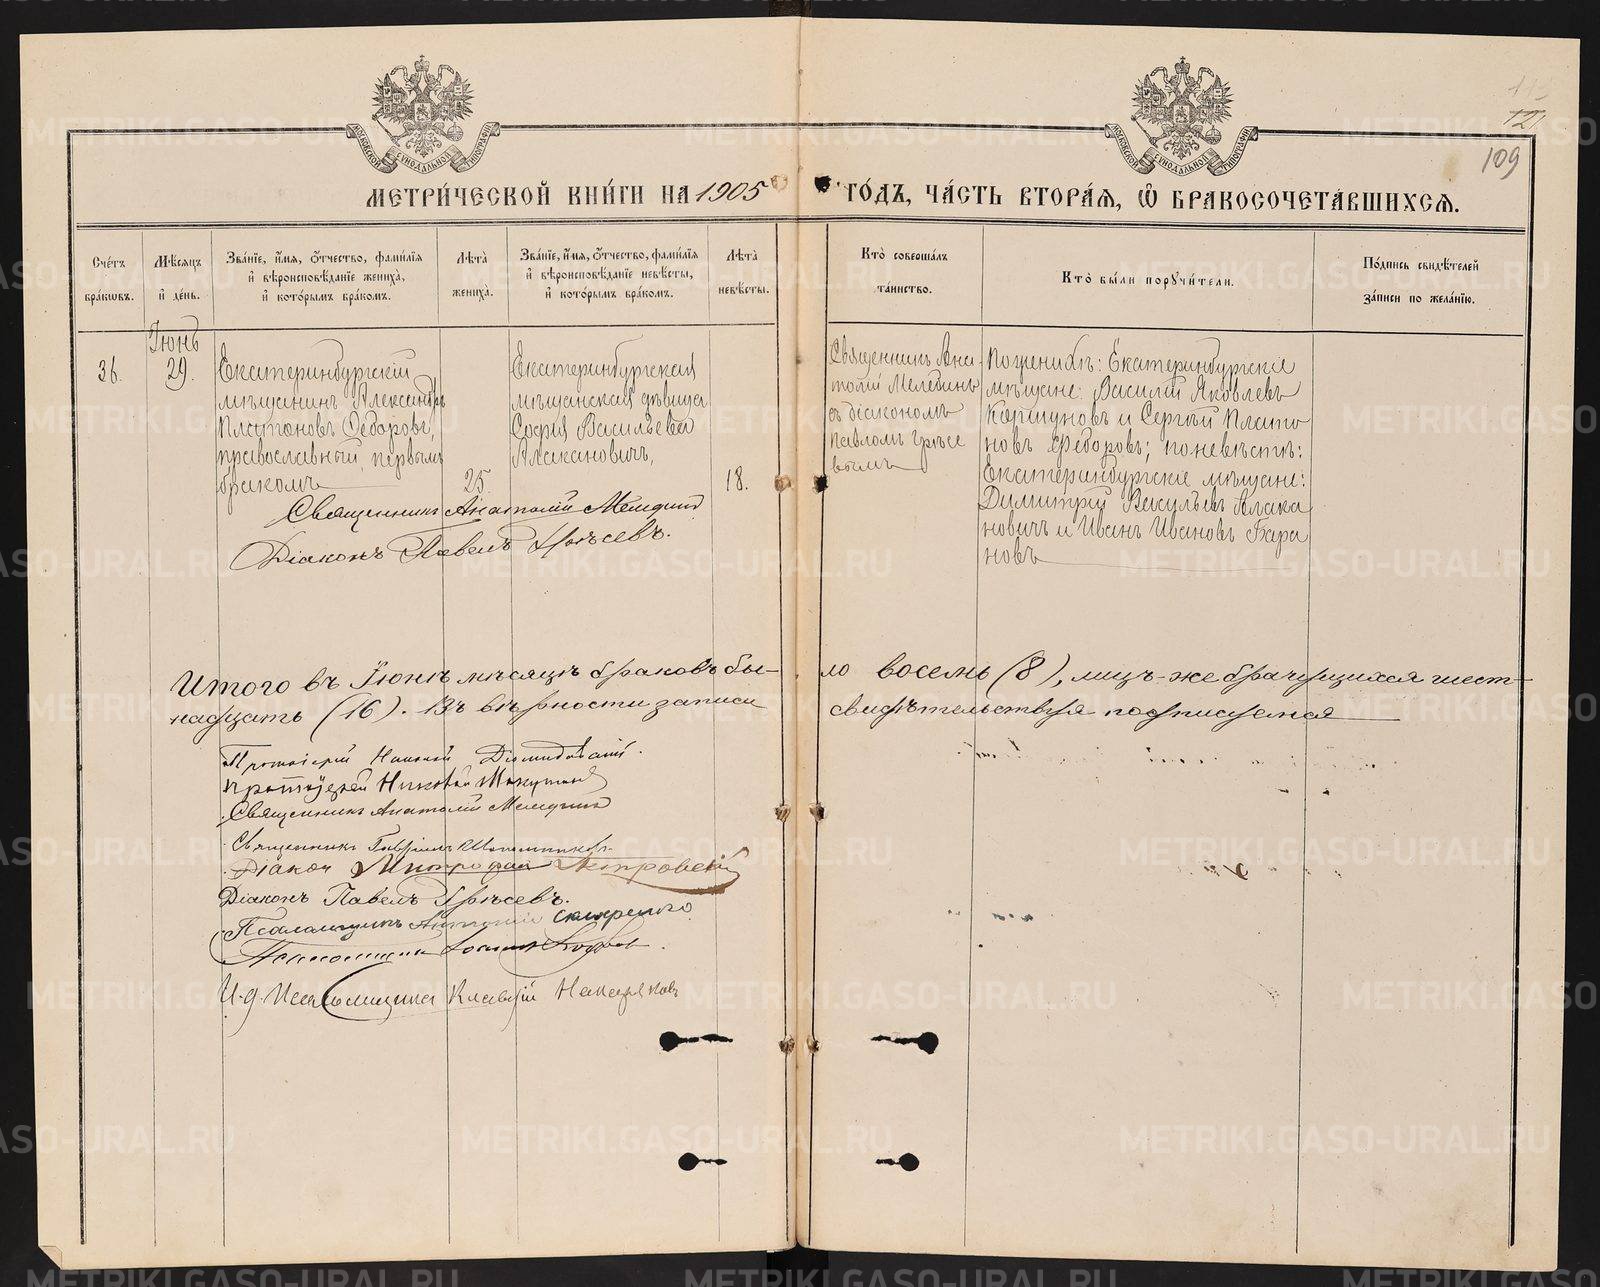 МЕТРИ́ЧЕСКОЙ КНИ́ГИ НА 1905 ГО́ДЪ, ЧА́СТЬ ВТОРА́Я, Ѿ БРАКОСОЧЕТА́ВШИХСЯ.
109
Сче́тъ бра́кѡвъ.
Мѣ́сяцъ и́ день.
Зва́нїе, и́мя, ѻ́тчество, фами́лїя и́ вѣроисповѣ́данїе жениха̀, и́ кото́рымъ бра́комъ.
Лѣта̀ жениха̀.
Зва́нїе, и́мя, ѻ́тчество, фами́лїя и́ вѣроисповѣ́данїе невѣ́сты, и́ кото́рымъ бра́комъ.
Лѣта̀ невѣ́сты.
Кто̀ соверша́лъ та́инство.
Кто̀ бы́ли порꙋчи́тели.
По́дпись свидѣ́телей за́писи по жела́нїю.
Іюнь
36.
29.
Екатеринбургскій
мѣщанинъ Александръ
Платоновъ Ѳедоровъ,
православный, первымъ
бракомъ
25.
Екатеринбургская
мѣщанская дѣвица
Софія Васильева
Алакановичъ,
18.
Священникъ Ана-
толій Мелединъ
съ діакономъ
Павломъ Грѣсе
вымъ
По женихѣ: Екатеринбургскіе
мѣщане: Василій Яковлевъ
Коршуновъ и Сергѣй Плато
новъ Ѳедоровъ; по невѣстѣ:
Екатеринбургскіе мѣщане:
Димитрій Васильевъ Алака
новичъ и Иванъ Ивановъ Бара
новъ
Священникъ Анатолій Меледин
Діаконъ Павелъ Грѣсевъ.
Итого въ Іюнѣ мѣсяцѣ браковъ бы-
ло восемь (8), лицъ-же брачущихся шест-
надцать (16). Въ вѣрности записи
свидѣтельствуя подписуемся
Протоіерей
Протоіерей Николай
Священникъ Анатолій Меледин
Священникъ Гавріилъ
Діакон Митрофан Петровскій
Діаконъ Павелъ Грѣсевъ.
Псаломщикъ Антоній
Псаломщикъ
И. д. Псаломщика